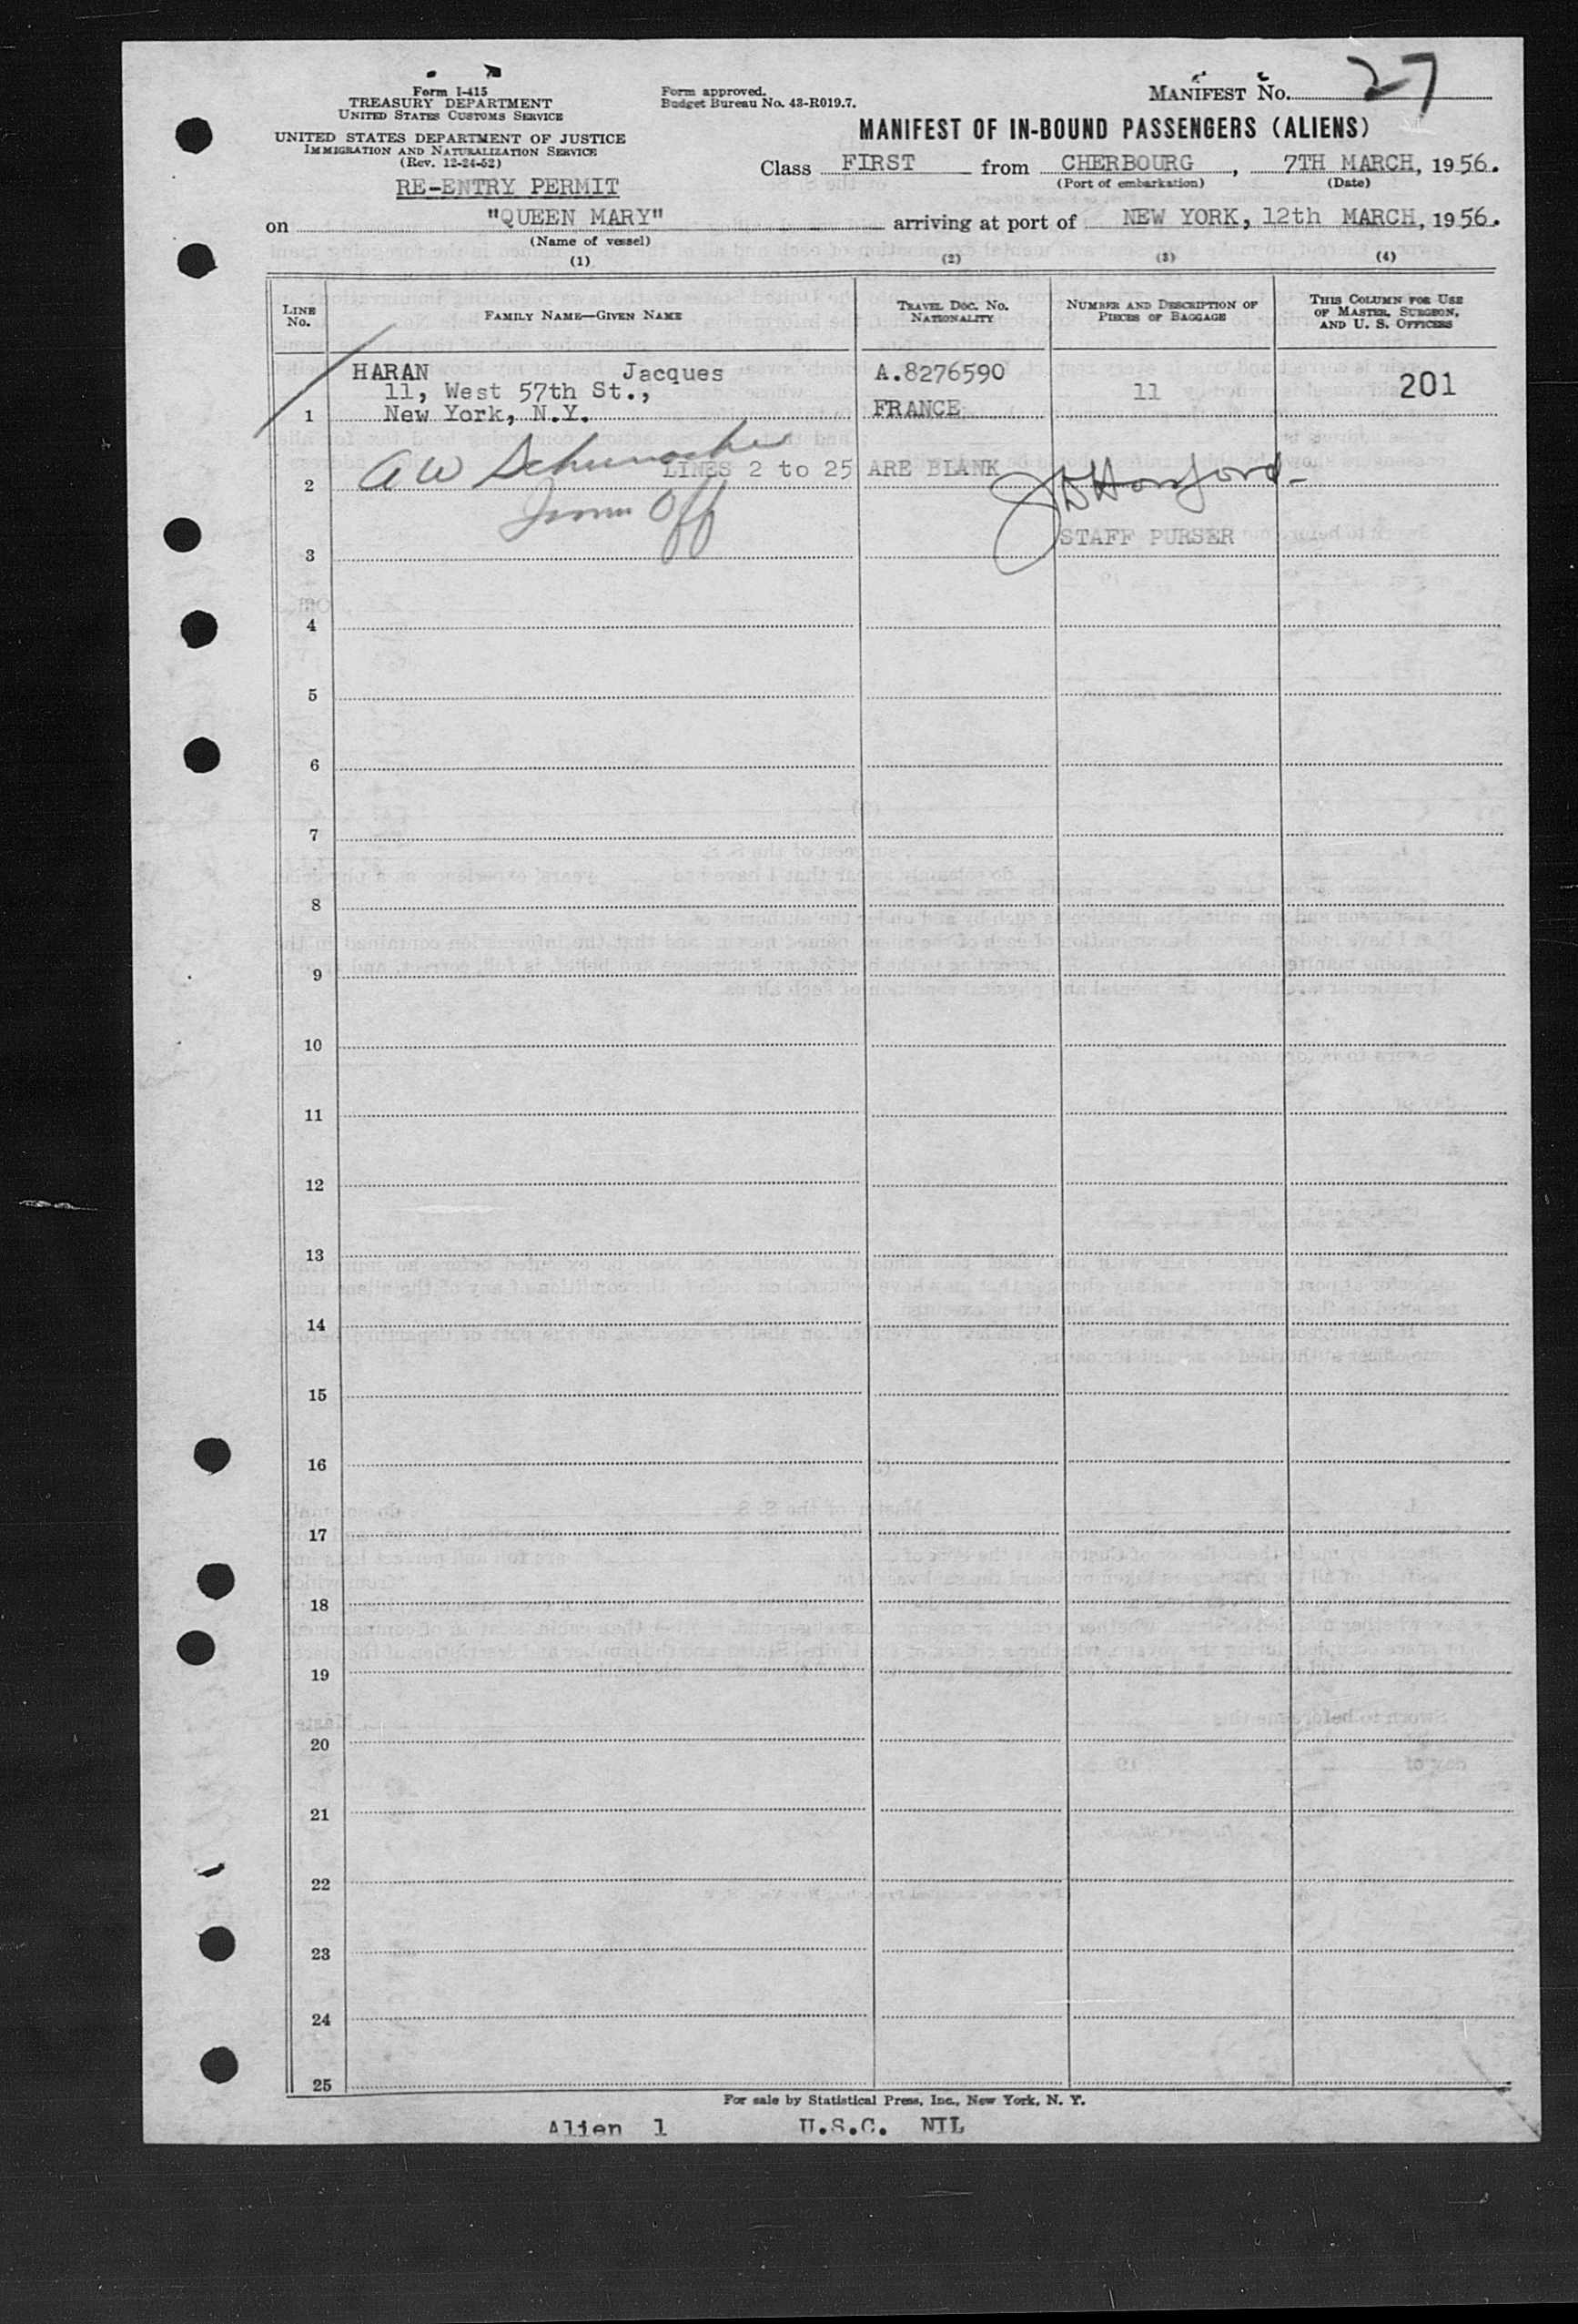 Form I-415
TREASURY DEPARTMENT
UNITED STATES CUSTOMS SERVICE
UNITED STATES DEPARTMENT OF JUSTICE
IMMIGRATION AND NATURALIZATION SERVICE
(Rev. 12-24-52)
RE-ENTRY PERMIT
Form approved.
Budget Bureau No. 43-R019.7.
MANIFEST NO. 27
MANIFEST OF IN-BOUND PASSENGERS (ALIENS)
Class FIRST from CHERBOURG, 7TH MARCH, 1956.
(Port of embarkation) (Date)
on "QUEEN MARY" arriving at port of NEW YORK, 12th MARCH, 1956.
(Name of vessel)
(1) (2) (3) (4)
LINE No. FAMILY NAME—GIVEN NAME TRAVEL DOC. NO. NATIONALITY NUMBER AND DESCRIPTION OF PIECES OF BAGGAGE THIS COLUMN FOR USE OF MASTER, SURGEON, AND U. S. OFFICERS
HARAN Jacques A.8276590
11, West 57th St., 11 201
1 New York, N.Y. FRANCE
A W Schumacher
2 LINES 2 to 25 ARE BLANK
Imm Off
STAFF PURSER
3
4
5
6
7
8
9
10
11
12
13
14
15
16
17
18
19
20
21
22
23
24
25
For sale by Statistical Press, Inc., New York, N. Y.
Alien 1 U.S.C. NIL